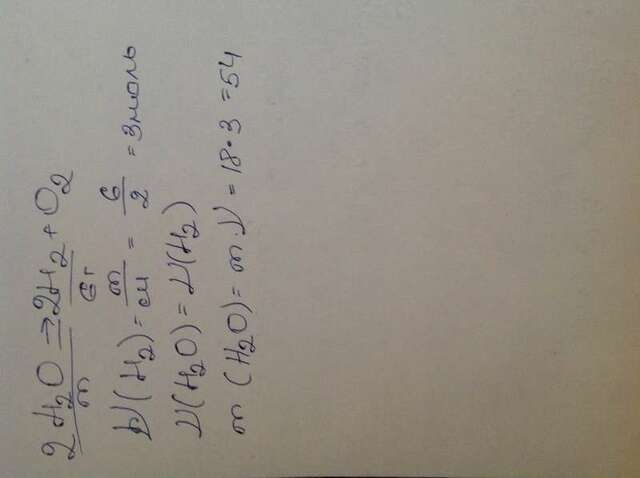 2H₂O = 2H₂ + O₂
m 6г
ν(H₂) = m/M = 6/2 = 3моль
ν(H₂O) = ν(H₂)
m(H₂O) = m·ν = 18·3 = 54